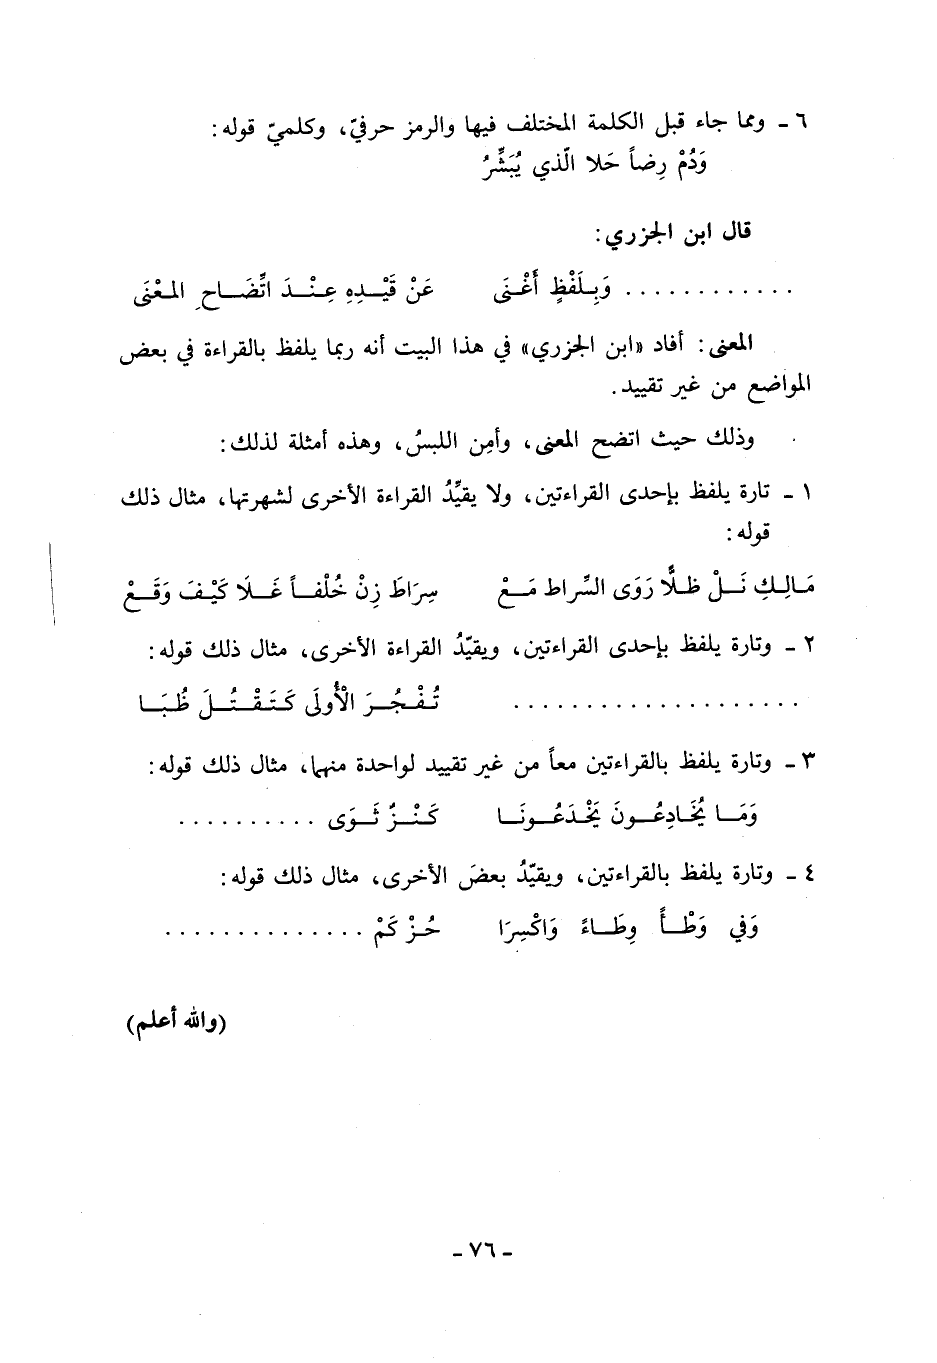 ٦ - ومما جاء قبل الكلمة المختلف فيها والرمز حرفيّ، وكلميّ قوله:
وَدُمْ رِضاً حَلا الّذي يُبَشِّرُ
قال ابن الجزري:
............ وَبِلَفْظٍ أَغْنَى عَنْ قَيْدِهِ عِنْدَ اتِّضَاحِ المَعْنَى
المعنى: أفاد «ابن الجزري» في هذا البيت أنه ربما يلفظ بالقراءة في بعض
المواضع من غير تقييد.
وذلك حيث اتضح المعنى، وأمِن اللبسُ، وهذه أمثلة لذلك:
١ - تارة يلفظ بإحدى القراءتين، ولا يقيِّدُ القراءة الأخرى لشهرتها، مثال ذلك
قوله:
مَالِكِ نَلْ ظلًّا رَوَى السِّراط مَعْ سِرَاطَ زِنْ خُلْفاً غَلَا كَيْفَ وَقَعْ
٢ - وتارة يلفظ بإحدى القراءتين، ويقيّدُ القراءة الأخرى، مثال ذلك قوله:
.................... تُفْجُرَ الْأُولَى كَتَقْتُلَ ظُبَا
٣ - وتارة يلفظ بالقراءتين معاً من غير تقييد لواحدة منهما، مثال ذلك قوله:
وَمَا يُخَادِعُونَ يَخْدَعُونَا كَنْزٌ ثَوَى ..........
٤ - وتارة يلفظ بالقراءتين، ويقيّدُ بعضَ الأخرى، مثال ذلك قوله:
وَفي وَطْأً وِطَاءً وَاكْسِرَا حُزْ كَمْ ..............
(والله أعلم)
- ٧٦ -